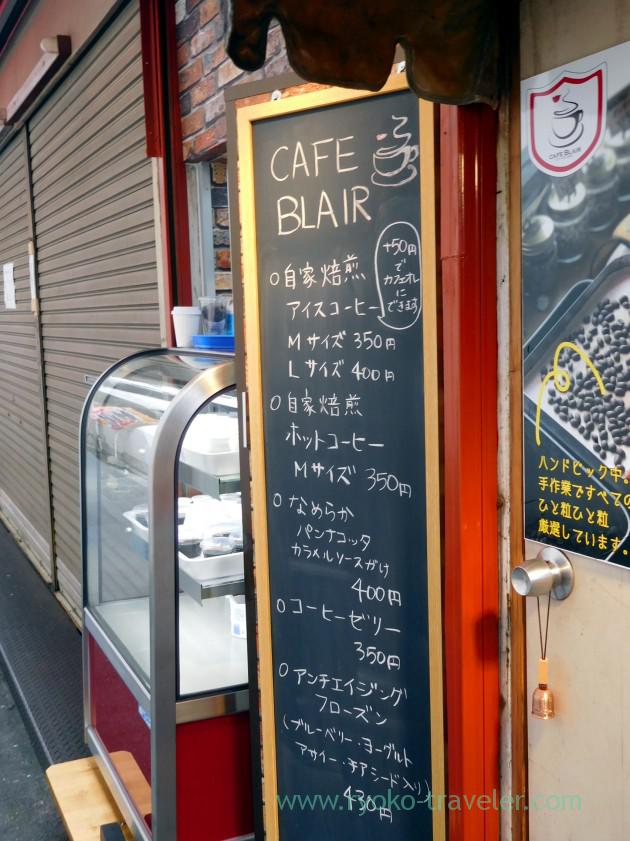 CAFE
BLAIR
+50円
で
カフェオレ
に
できます
○自家焙煎
アイスコーヒー
Mサイズ 350円
Lサイズ 400円
○自家焙煎
ホットコーヒー
Mサイズ 350円
○なめらか
パンナコッタ
カラメルソースがけ
400円
○コーヒーゼリー
350円
○アンチエイジング
フローズン
(ブルーベリー・ヨーグルト
アサイー・チアシード入り)
430円
CAFE BLAIR
ハンドピック中。
手作業ですべての
ひと粒ひと粒
厳選しています。
www.ryoko-traveler.com